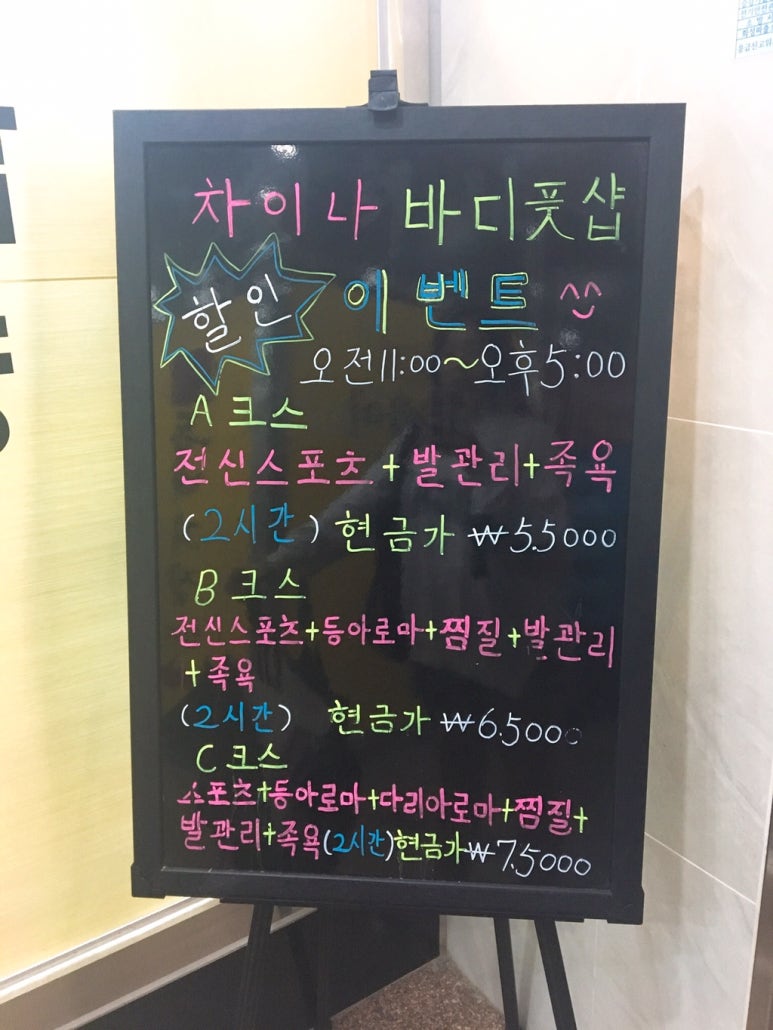 차이나 바디풋샵
할인 이벤트 ^^
오전11:00~오후5:00
A 크스
전신스포츠+발관리+족욕
(2시간) 현금가 ₩5.5000
B 크스
전신스포츠+등아로마+찜질+발관리
+족욕
(2시간) 현금가 ₩6.5000
C 크스
스포츠+등아로마+다리아로마+찜질+
발관리+족욕(2시간)현금가₩7.5000